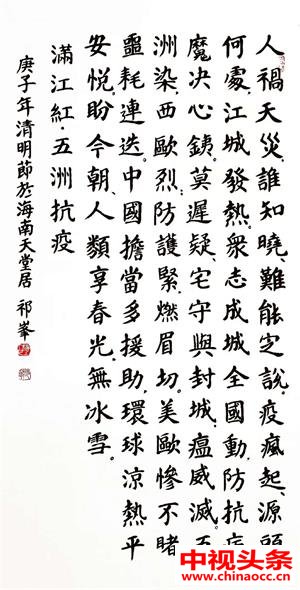 人禍天災,誰知曉、難能定說。疫瘋起、源頭
何處,江城發熱。衆志成城全國動,防抗病
魔决心銕。莫遲疑、宅守與封城,瘟威滅。五
洲染、西歐烈。防護緊、燃眉切。美歐慘不睹
噩耗連迭。中國擔當多援助、環球涼熱平
安悅盼今朝、人類享春光,無冰雪。
滿江紅·五洲抗疫
庚子年清明節於海南天堂居 祁峯
中视头条
www.chinaocc.cn